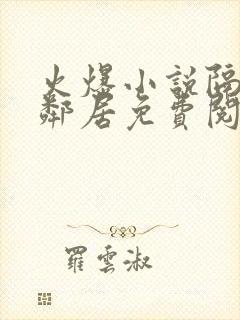 火爆小说隔
鄰居免費閱
羅雲淑